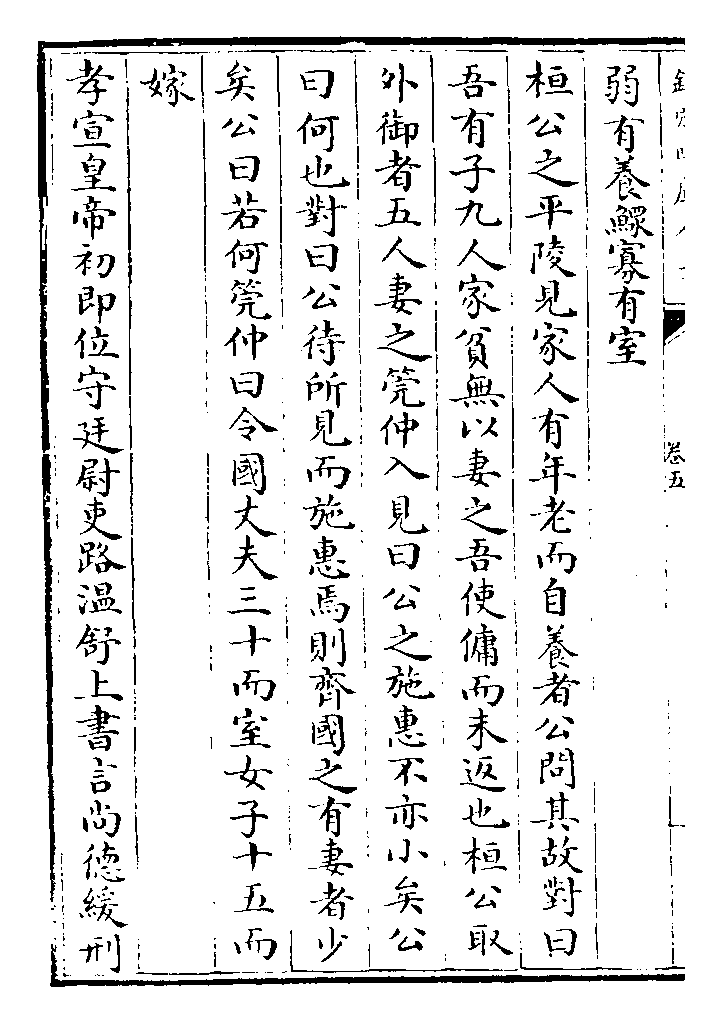 弱有養鰥寡有室
桓公之平陵見家人有年老而自養者公問其故對曰
吾有子九人家貧無以妻之吾使傭而未返也桓公取
外御者五人妻之筦仲入見曰公之施惠不亦小矣公
曰何也對曰公待所見而施惠焉則齊國之有妻者少
矣公曰若何筦仲曰令國丈夫三十而室女子十五而
嫁
孝宣皇帝初即位守廷尉吏路温舒上書言尚德緩刑
卷五